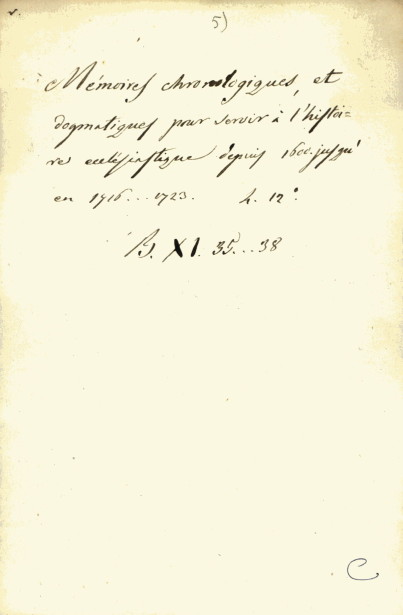 5)
Mémoires chronologiques, et
dogmatiques pour servir à l'histoi=
re ecclésiastique depuis 1600. jusqu'
en 1716...1723. h. 12°.
B. XI. 35...38
C